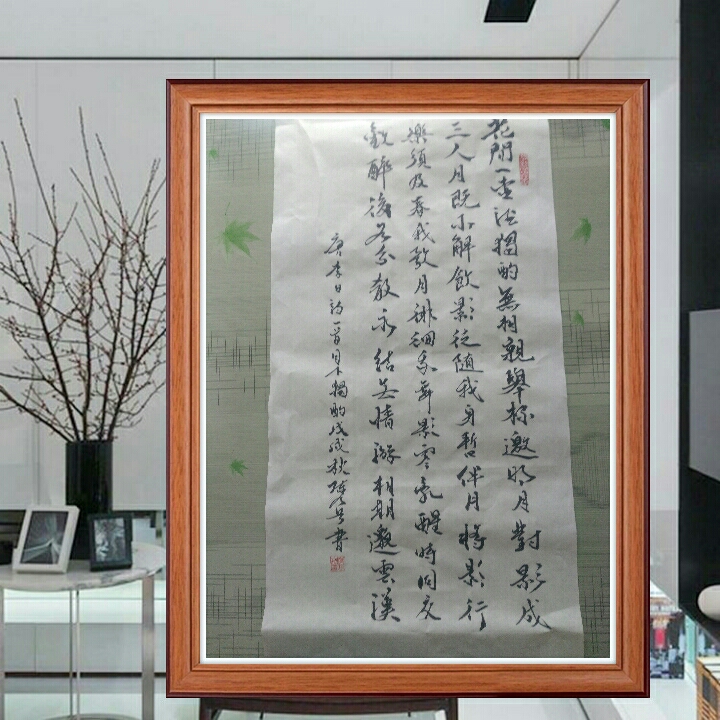 花間一壺酒獨酌無相親舉杯邀明月對影成
三人月既不解飲影徒隨我身暫伴月將影行
樂須及春我歌月徘徊我舞影零亂醒時同交
歡醉後各分散永結無情遊相期邈雲漢
唐李白詩一首月下獨酌戊戌秋書